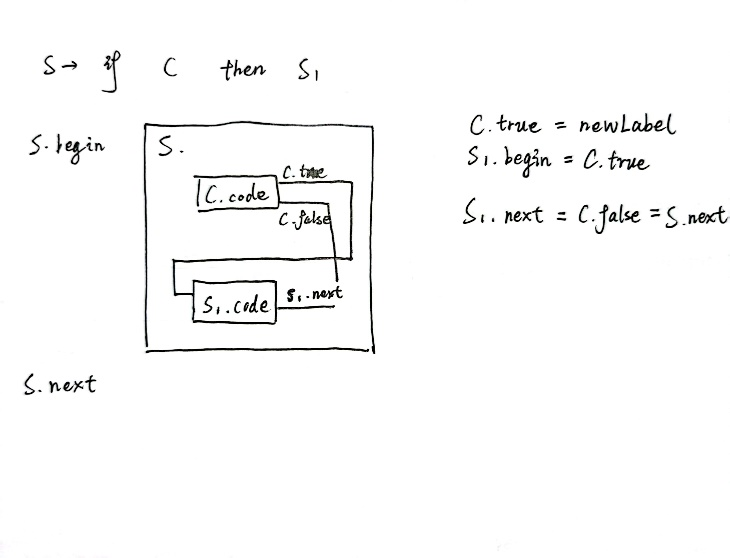 S→ if C then S₁
S.begin
S.
C.true
C.code
C.false
S₁.code
S₁.next
S.next
C.true = newLabel
S₁.begin = C.true
S₁.next = C.false = S.next